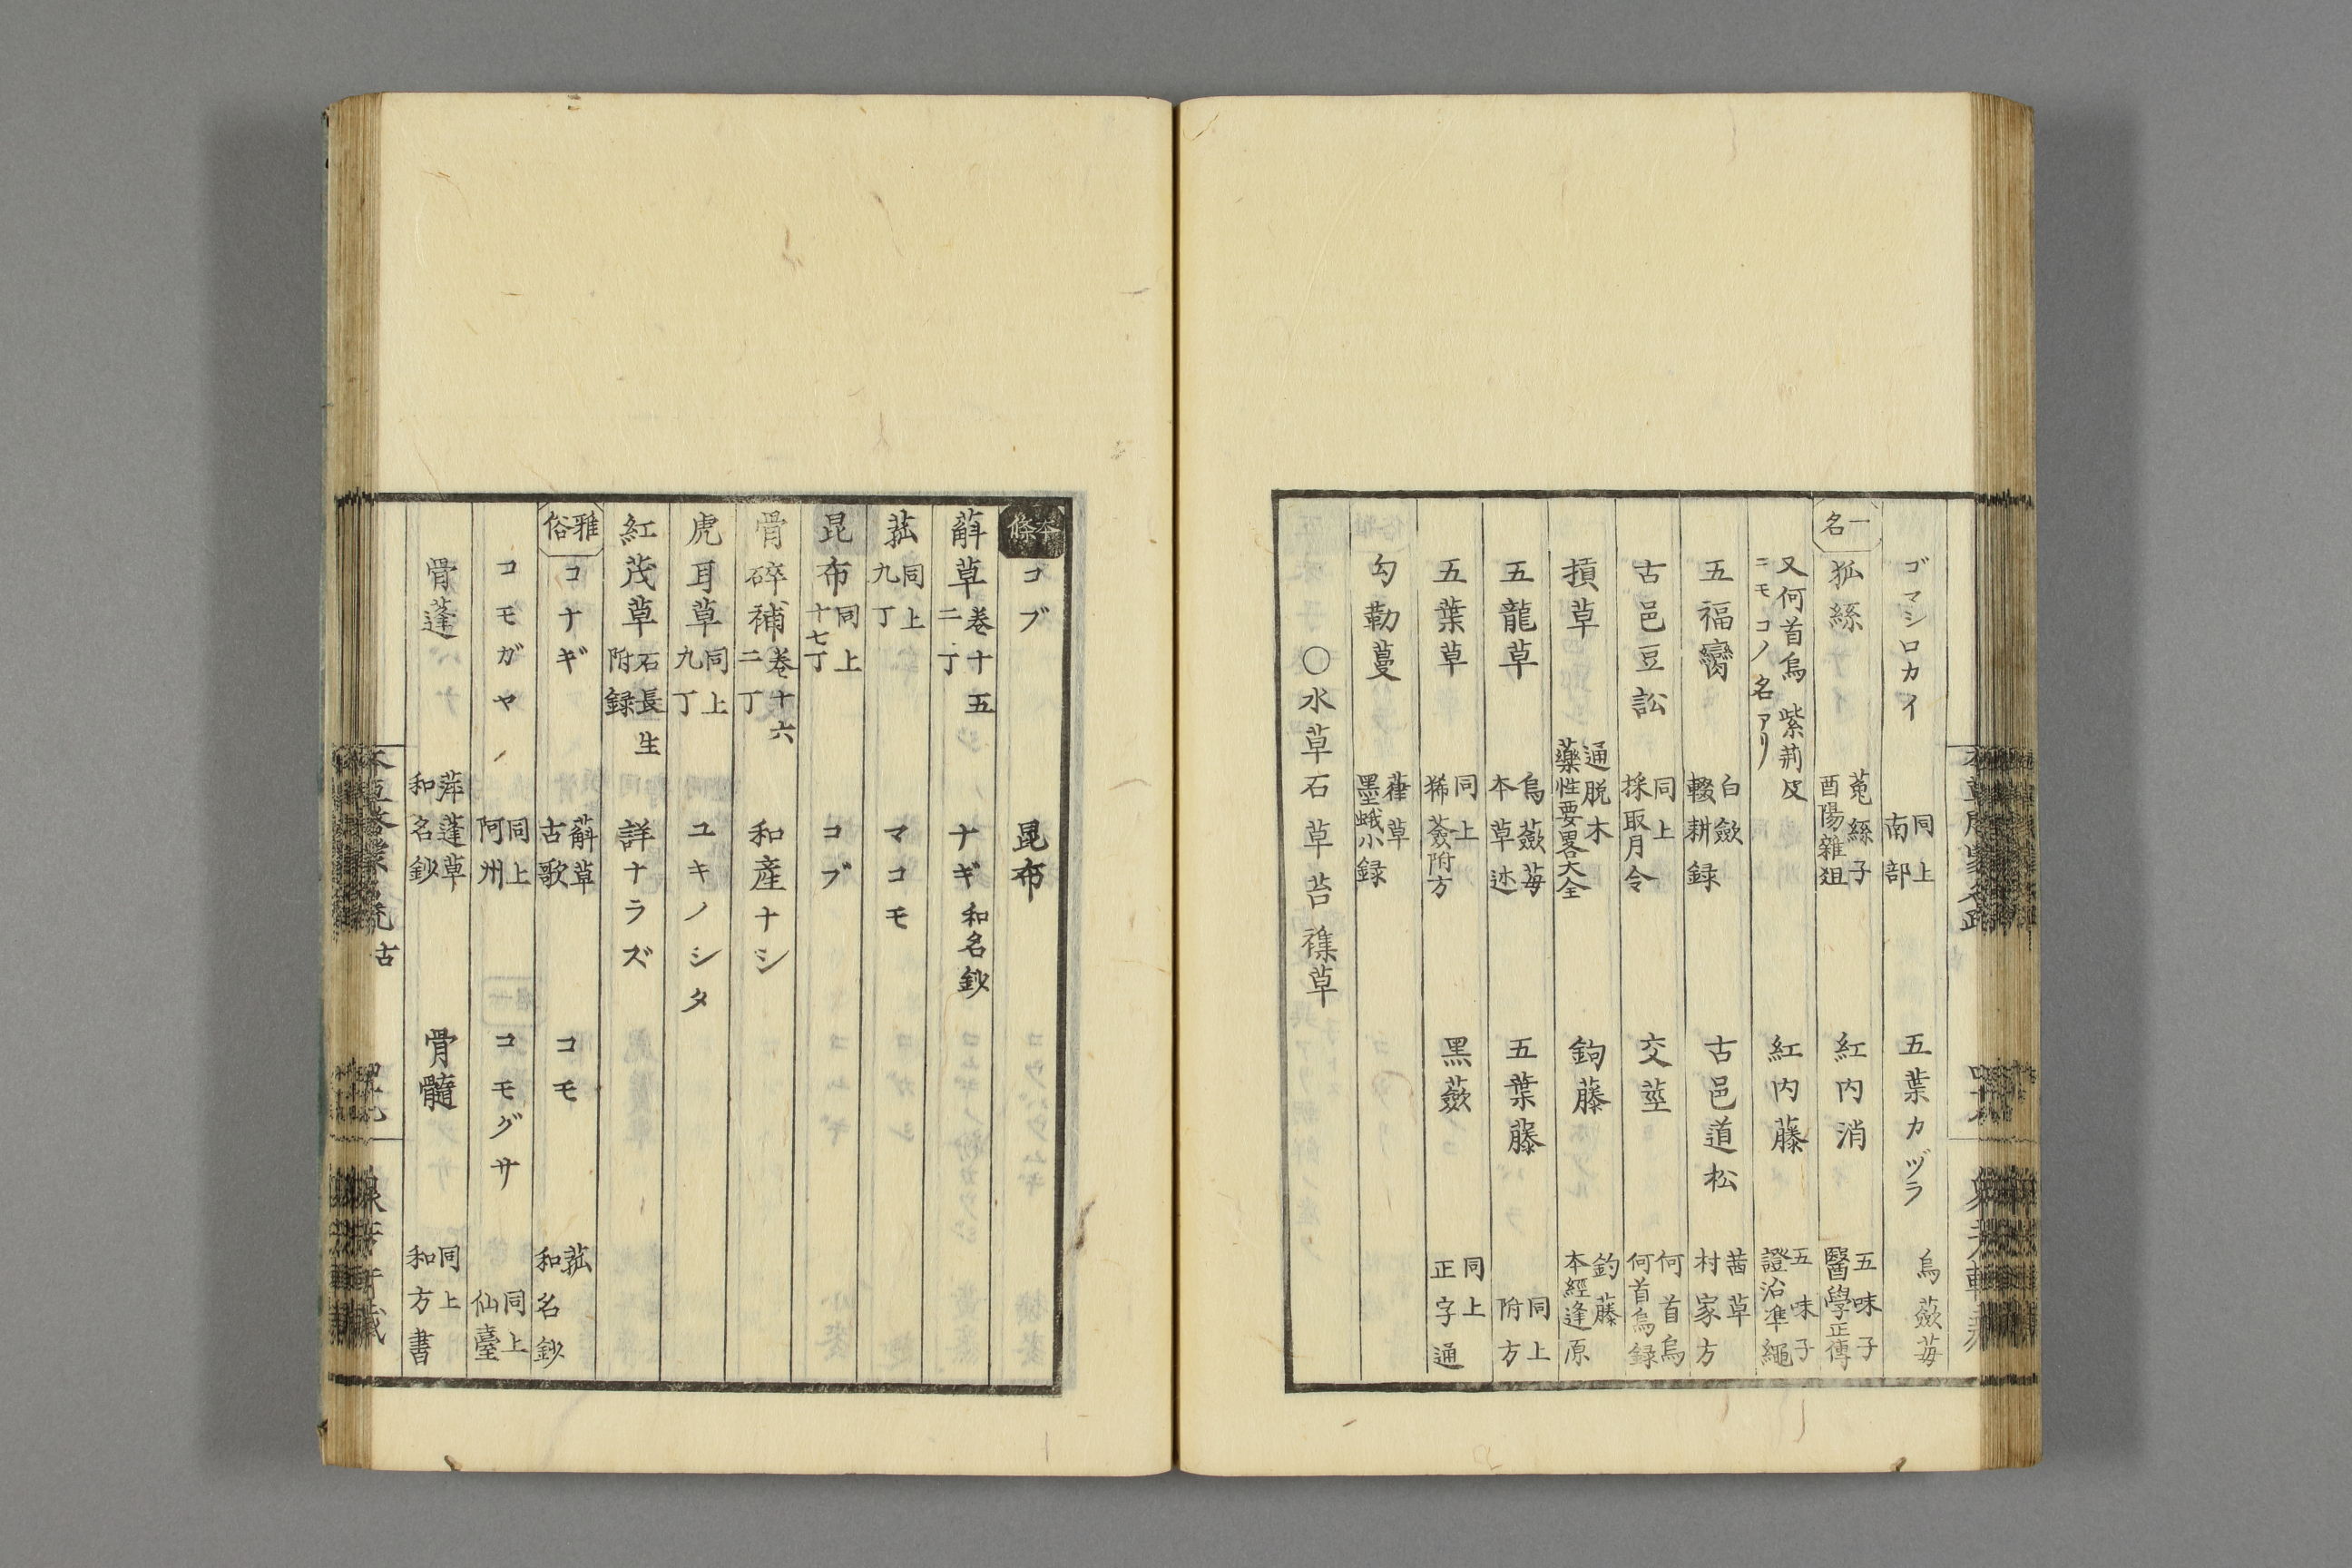 ゴマシロカイ 同上 南部 五葉カヅラ 烏蘞苺
一名 狐絲 菟絲子 酉陽雜俎 紅内消 五味子 醫學正傳
又何首烏 紫荊皮ニモコノ名アリ 紅内藤 五味子 證治準繩
五福臠 白蘞 輟耕録 古邑道松 茜草 村家方
古邑豆訟 同上 採取月令 交莖 何首烏 何首烏録
摃草 通脱木 藥性要畧大全 鉤藤 釣藤 本經逢原
五龍草 烏蘞苺 本草述 五葉藤 同上 附方
五葉草 同上 狶薟附方 黒蘞 同上 正字通
勾勒蔓 葎草 墨蛾小録
〇水草石草苔襍草
本條 コブ 昆布
蔛草 巻十五 二丁 ナギ 和名鈔
菰 同上 九丁 マコモ
昆布 同上 十七丁 コブ
骨碎補 巻十六 二丁 和産ナシ
虎耳草 同上 九丁 ユキノシタ
紅茂草 石長生 附録 詳ナラズ
雅俗 コナギ 蔛草 古歌 コモ 菰 和名鈔
コモガヤ 同上 阿州 コモグサ 同上 仙臺
骨蓬 萍蓬草 和名鈔 骨髓 同上 和方書
古